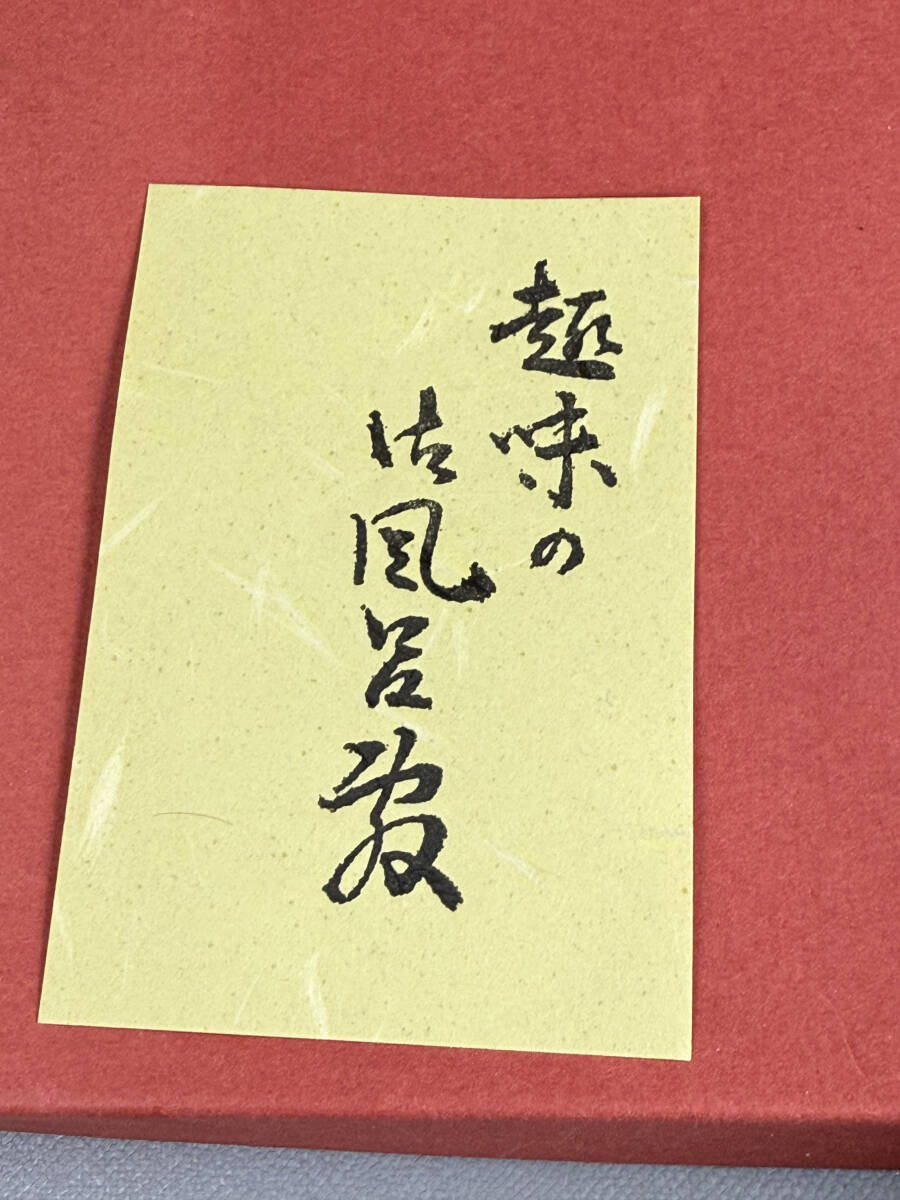 趣味の
古風呂敷